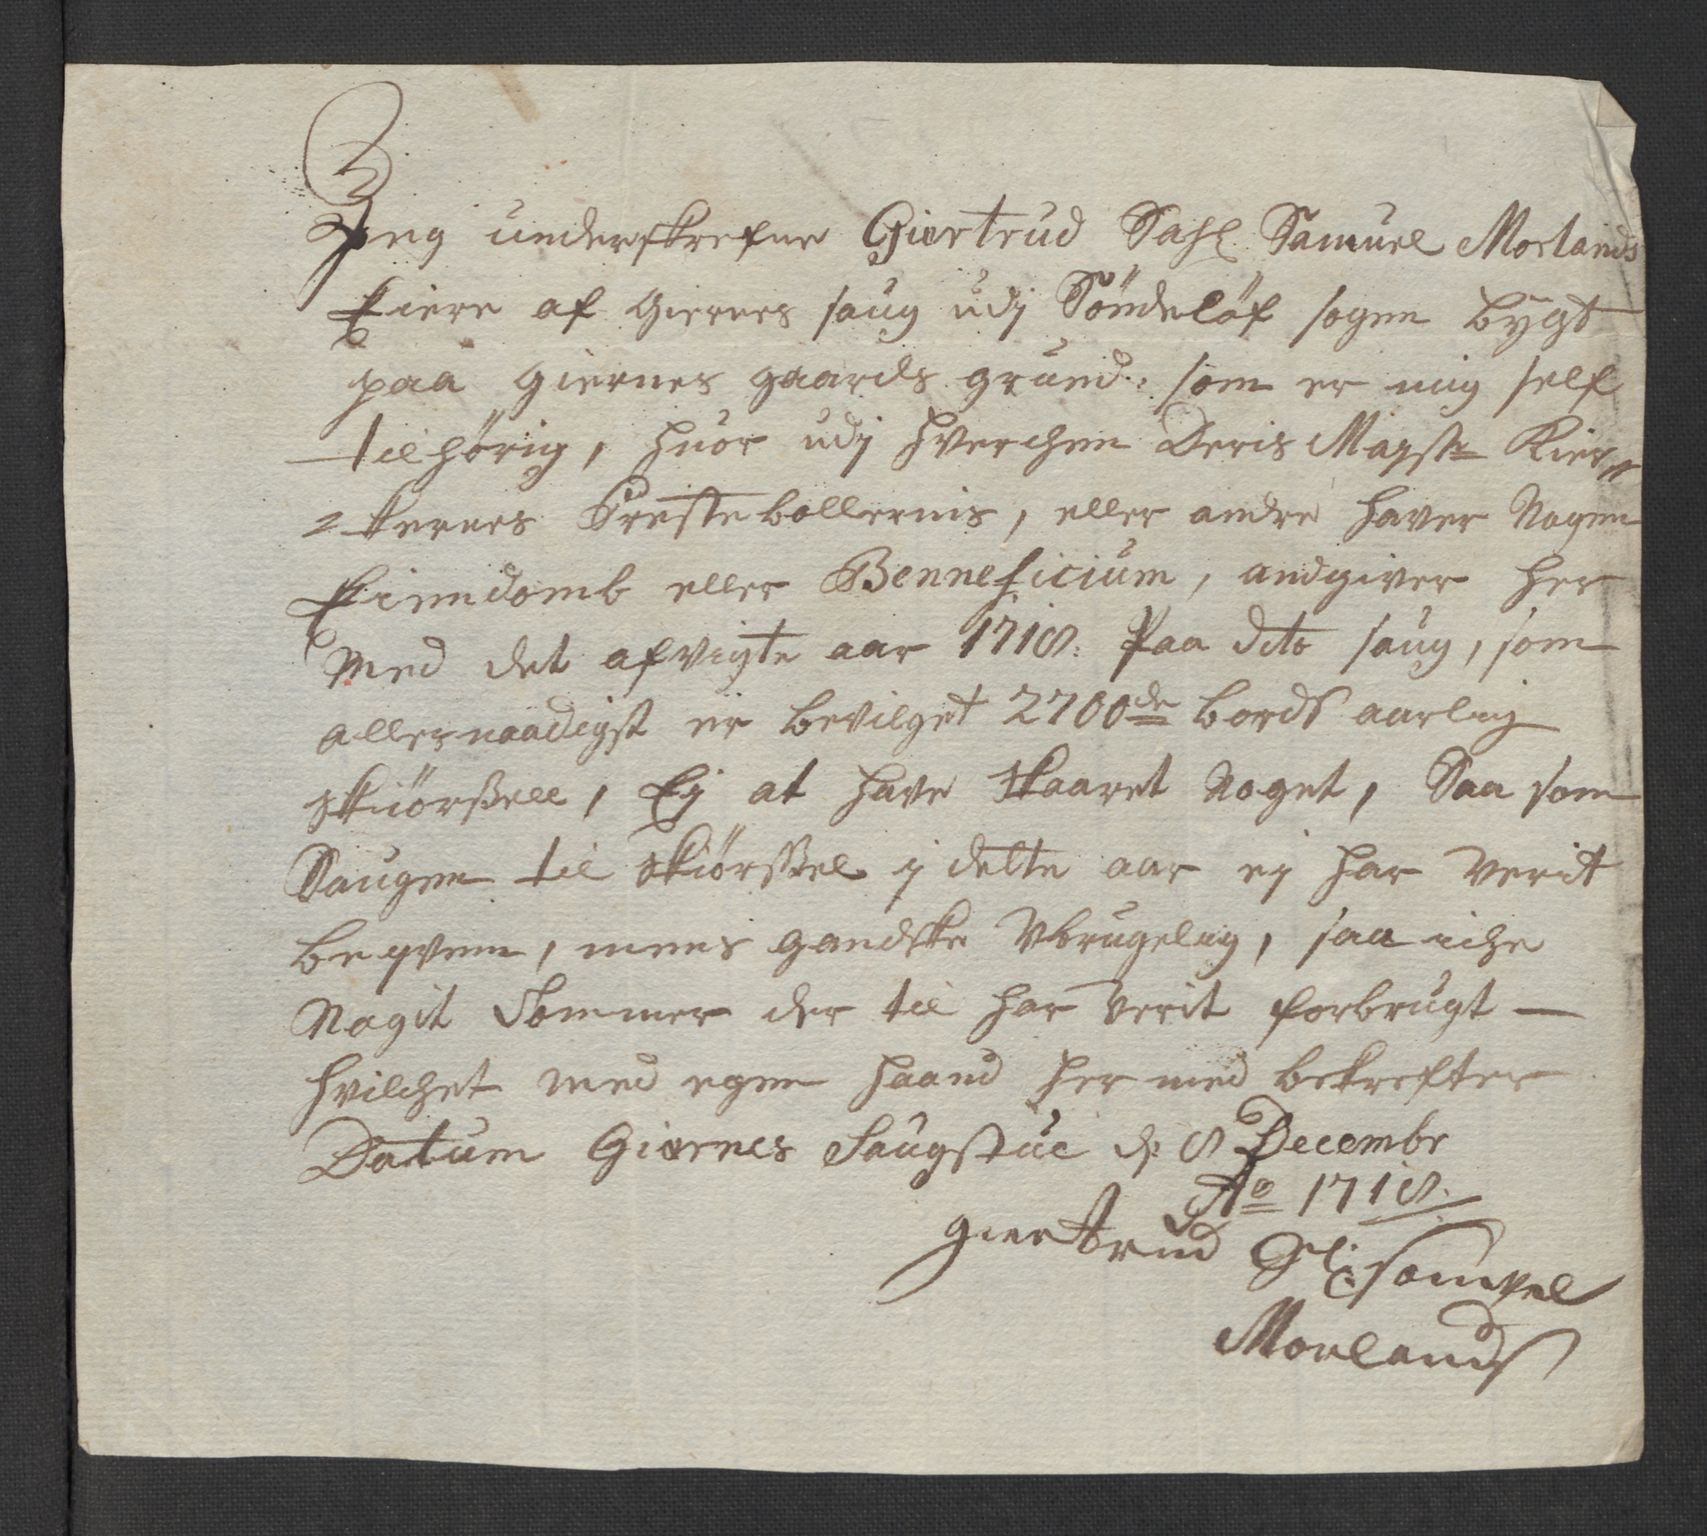 Jeg underskrefne Giertrud Sahl Samuel Morlands
Eiere af Giernes saug udj Söndelöf sogen bygt
paa Giernes gaards grund: som er mig self
tilhörig, huor udj hverchen Deris Mayst Kier
kernes Prestebollernis, eller andre haver Nogen
Eiendomb eller Benneficium, andgiver her
med det afvigte aar 1718. Paa dito saug, som
allernaadigst er bevilget 2700de bords aarlig
skiörßell, Ej at have skaaret Noget, Saa som
Saugen til skiörßel j dette aar ej har verit
beqvem, mens gandske Vbrugelig, saa iche
Nogit Tömmer der til har verit forbrugt —
hvilchet med egen haand her med bekrefter
Datum Giernes Saugstue d: 8 Decembr
Ao 1718.
giertrud Sl: samvel
Morlands